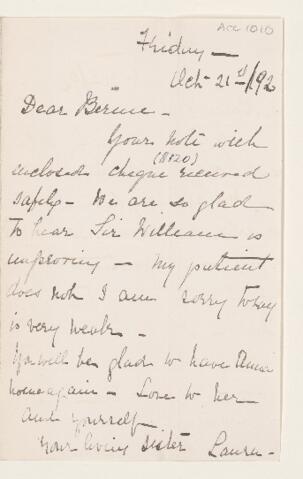 Acc 1010
Friday —
Oct 21st/92
Dear Bernie -
Your note with
($120)
enclosed cheque received
safely - We are so glad
to hear Sir William is
improving - My patient
does not I am sorry to say
is very weak -
You will be glad to have Anna
home again - Love to her
and yourself
Your loving sister Laura -